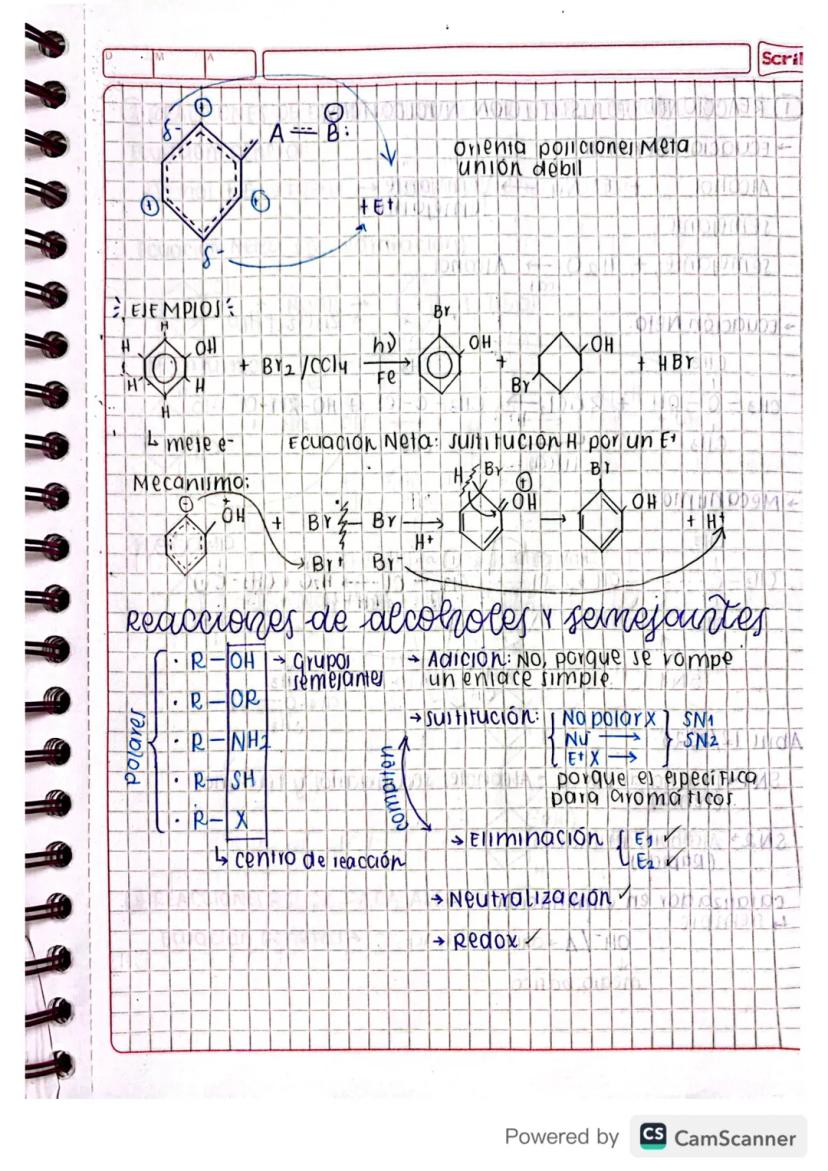 D M A
Scri
δ- ⊕ A = B: ⊖
Orienta posiciones Meta
unión débil
⊕ ⊕ + E+
δ-
EJEMPlOS:
H H OH H H H + Br2 /CCl4 hν Fe Br OH + OH Br + HBr
↳ mete e- Ecuación Neta: sustitución H por un E+
Mecanismo:
OH + Br Br → H+ H Br ⊕ OH → Br OH + H+
Br+ Br-
Reacciones de alcoholes y semejantes
Polares
· R-OH → Grupos semejantes
· R-OR
· R-NH2
· R-SH
· R-X
↳ centro de reacción
→ Adición: No, porque se rompe
un enlace simple
→ Sustitución: No polar X SN1
Nu → SN2
E+ X →
porque es específica
para aromáticos
Compiten
→ Eliminación E1 ✓
E2 ✓
→ Neutralización ✓
→ Redox ✓
Powered by CS CamScanner